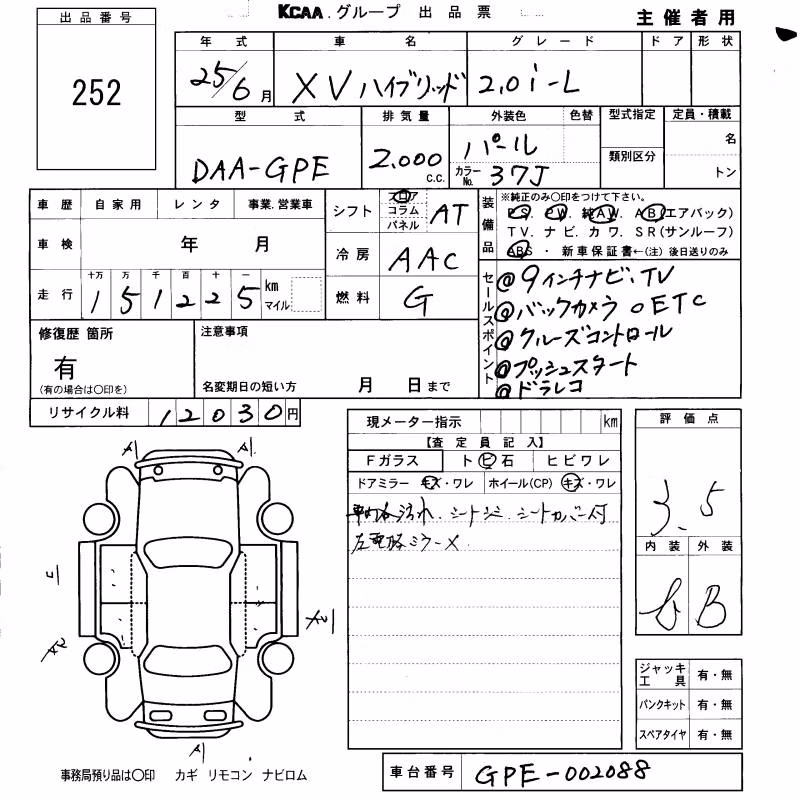 出品番号
252
KCAA.グループ 出品票
主催者用
年式 車名 グレード ドア 形状
25/6月 XVハイブリッド 2.0i-L
型式 排気量 外装色 色替 型式指定 定員・積載
DAA-GPE 2,000 C.C. パール 名
類別区分
カラーNo. 37J トン
車歴 自家用 レンタ 事業.営業車
シフト フロア コラム パネル AT
装備品 ※純正のみ〇印をつけて下さい。
PS. PW. 純AW. AB(エアバック)
TV. ナビ. カワ. SR(サンルーフ)
ABS ・ 新車保証書←(注) 後日送りのみ
車検 年 月
冷房 AAC
走行 十万 万 千 百 十 一
151225 km マイル
燃料 G
セールスポイント
@9インチナビ、TV
@バックカメラ oETC
@クルーズコントロール
@プッシュスタート
@ドラレコ
修復歴 箇所
有
(有の場合は〇印を)
注意事項
名変期日の短い方 月 日まで
リサイクル料 12030円
現メーター指示 km
【査定員記入】
Fガラス ト ビ 石 ヒビワレ
ドアミラー キズ・ワレ ホイール(CP) キズ・ワレ
車内各汚れ、シートシミ、シートカバー付
評価点
3.5
内装 外装
B
A1 A1
A1
ジャッキ工具 有・無
パンクキット 有・無
スペアタイヤ 有・無
事務局預り品は〇印 カギ リモコン ナビロム
車台番号 GPE-002088